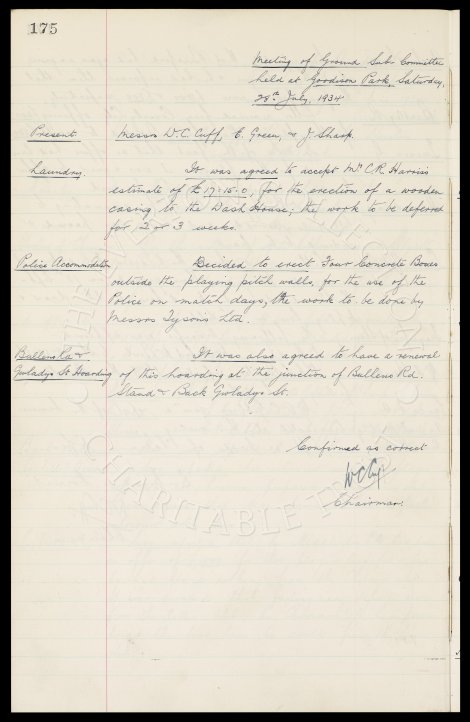 175
Meeting of Ground Sub Committee
held at Goodison Park, Saturday,
28th July, 1934
Present Messrs W.C. Cuff, E. Green, & J. Sharp.
Laundry It was agreed to accept Mr C.R. Harriss
estimate of £17-15-0, for the erection of a wooden
casing to the Wash House; the work to be deferred
for 2 or 3 weeks.
Police Accommodation Decided to erect Four Concrete Boxes
outside the playing pitch walls, for the use of the
Police on match days, the work to be done by
Messrs Tysons Ltd.
Bullens Rd & It was also agreed to have a renewal
Gwladys St Hoarding of this hoarding at the junction of Bullens Rd.
Stand & Back Gwladys St.
Confirmed as correct
W C Cuff
Chairman.
CHARITABLE